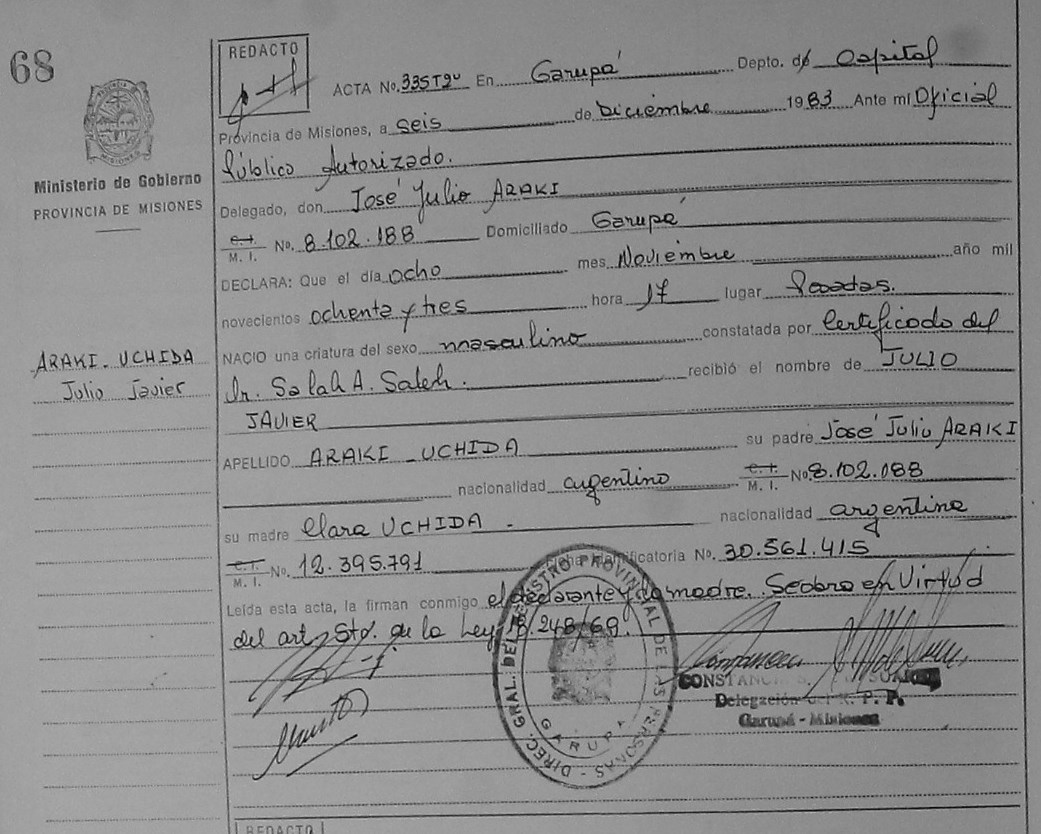 68
REDACTO
ACTA No. 335 Tº En Garupá Depto. de Capital
Provincia de Misiones, a seis de Diciembre 1983 Ante mí Oficial
Público Autorizado.
Delegado, don José Julio ARAKI
C.I. M.I. No. 8.102.188 Domiciliado Garupá
DECLARA: Que el día ocho mes Noviembre año mil
novecientos ochenta y tres hora 17 lugar Posadas.
NACIO una criatura del sexo masculino constatada por Certificado del
Dr. Salah A. Saleh. recibió el nombre de JULIO
JAVIER
APELLIDO ARAKI - UCHIDA su padre José Julio ARAKI
nacionalidad argentino C.I. M.I. No. 8.102.088
su madre Clara UCHIDA - nacionalidad argentina
C.I. M.I. No. 12.395.791 Ficha Identificatoria No. 30.561.415
Leída esta acta, la firman conmigo el declarante y la madre. Se obro en Virtud
del art. 5to. de la Ley 18.248/69.
Ministerio de Gobierno
PROVINCIA DE MISIONES
ARAKI - UCHIDA
Julio Javier
DIREC. GRAL. DEL REGISTRO PROVINCIAL DE LAS PERSONAS
GARUPA
Delegación del R. P. P.
Garupá - Misiones
REDACTO